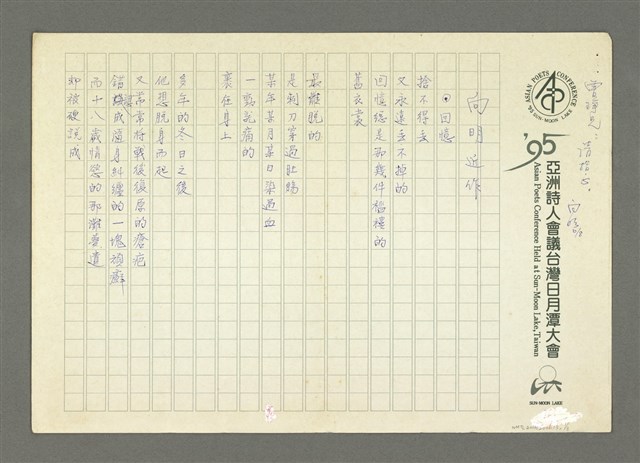 指正。
向明
ASIAN POETS CONFERENCE
'95 SUN-MOON LAKE
'95
亞洲詩人會議台灣日月潭大會
Asian Poets Conference Held at Sun-Moon Lake, Taiwan
SUN-MOON LAKE
向明近作
回憶
捨不得丟
又永遠丟不掉的
回憶總是那幾件襤褸的
舊衣裳
最難脫的
是刺刀穿過肚腸
某年某月某日染過血
一點就痛的
裹在身上
多年的冬日之後
他想脫身而起
又常常將戰後復原的瘡疤
錯換成滿身糾纏的一塊頑癬
而十八歲情慾的那灘夢遺
卻被硬說成